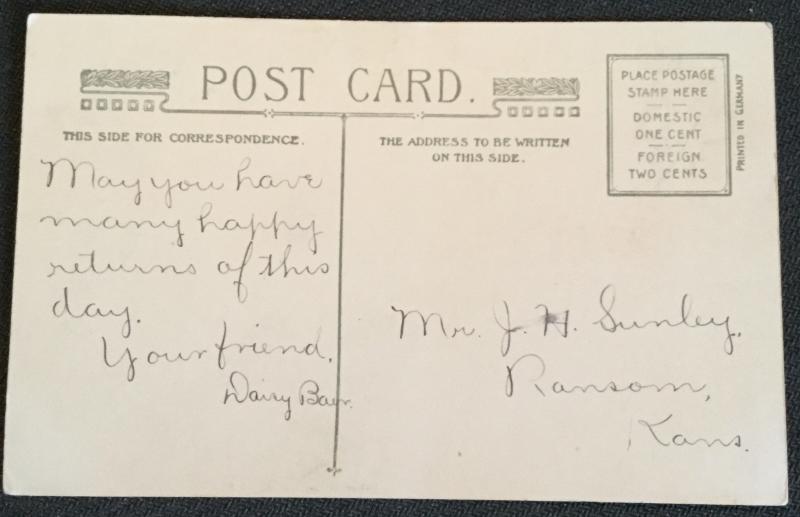 POST CARD.
THIS SIDE FOR CORRESPONDENCE.
THE ADDRESS TO BE WRITTEN
ON THIS SIDE.
PLACE POSTAGE
STAMP HERE
DOMESTIC
ONE CENT
FOREIGN
TWO CENTS
PRINTED IN GERMANY
May you have
many happy
returns of this
day.
Your friend,
Mr. J. H. Sunley,
Ransom,
Kans.